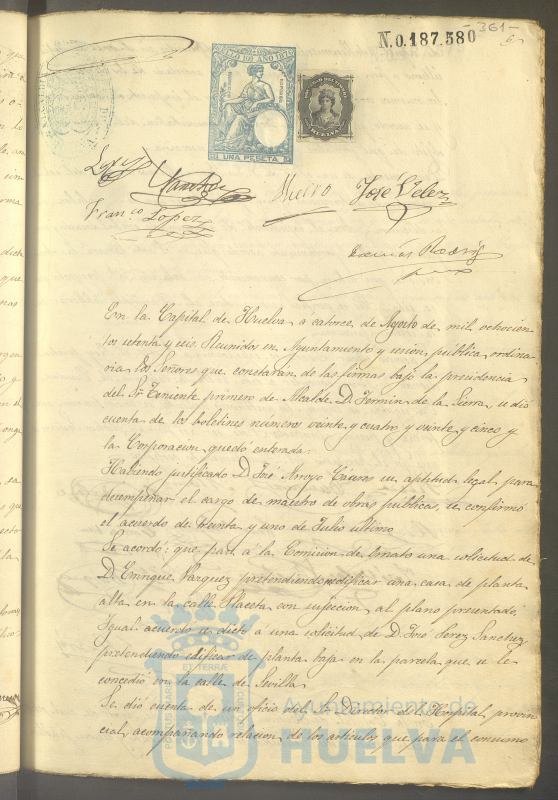 361
6
N.0.187.580
AÑO 1876
UNA PESETA
HUELVA
Huerro José Velez
Franco Lopez
En la Capital de Huelva á catorce de Agosto de mil ochocien
tos setenta y seis Reunidos en Ayuntamiento y sesion pública ordina
ria los Señores que constarán de las firmas bajo la presidencia
del Sr. Teniente primero de Alcalde D. Fermin de la Sierra, se dió
cuenta de los boletines números veinte y cuatro y veinte y cinco y
la Corporacion quedó enterada.
Habiendo justificado D. José Arroyo Caseros su aptitud legal para
desempeñar el cargo de maestro de obras públicas, se confirmó
el acuerdo de treinta y uno de Julio ultimo
Se acordó: que pase á la Comision de Ornato una solicitud de
D. Enrique Vazquez pretendiendo edificar una casa de planta
alta en la calle Placeta con sujecion al plano presentado.
Igual acuerdo se dictó á una solicitud de D. José Perez Sanchez
pretendiendo edificar de planta baja en la parcela que se le
concedió en la calle de Sevilla.
Se dió cuenta de un oficio del Sr. Director del Hospital provin
cial, acompañando relacion de los artículos que para el consumo
PORTUS MARIS ET TERRÆ CUSTODIA
Ayuntamiento de
HUELVA